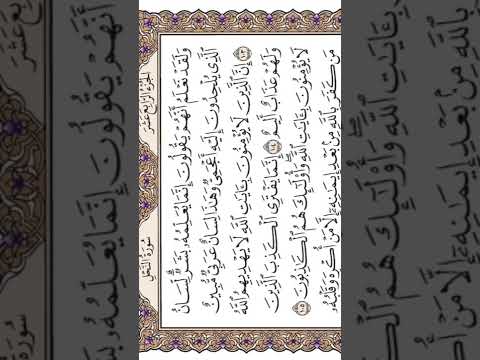 سُورَةُ النَّحْلِ
الجُزْءُ الرَّابِعَ عَشَرَ
وَلَقَدْ نَعْلَمُ أَنَّهُمْ يَقُولُونَ إِنَّمَا يُعَلِّمُهُۥ بَشَرٌ لِّسَانُ
ٱلَّذِى يُلْحِدُونَ إِلَيْهِ أَعْجَمِىٌّ وَهَٰذَا لِسَانٌ عَرَبِىٌّ مُّبِينٌ
١٠٣ إِنَّ ٱلَّذِينَ لَا يُؤْمِنُونَ بِـَٔايَٰتِ ٱللَّهِ لَا يَهْدِيهِمُ ٱللَّهُ
وَلَهُمْ عَذَابٌ أَلِيمٌ ١٠٤ إِنَّمَا يَفْتَرِى ٱلْكَذِبَ ٱلَّذِينَ
لَا يُؤْمِنُونَ بِـَٔايَٰتِ ٱللَّهِ وَأُو۟لَٰٓئِكَ هُمُ ٱلْكَٰذِبُونَ ١٠٥
مَن كَفَرَ بِٱللَّهِ مِنۢ بَعْدِ إِيمَٰنِهِۦٓ إِلَّا مَنْ أُكْرِهَ وَقَلْبُهُۥ